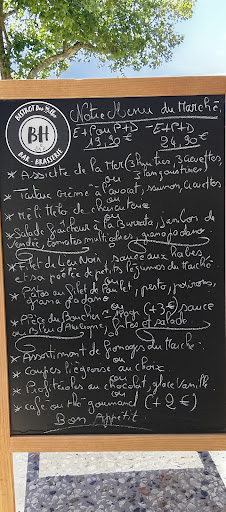 BISTROT Des Halles
BH
BAR - BRASSERIE
Notre Menu du Marché.
E+P ou P+D - E+P+D
19,90€ 24,90€
* Assiette de la Mer (3 huitres, 3 crevettes,
ou 3 langoustines)
* Tartare Crème d'avocat, saumon, crevettes
ou
* Méli Mélo de charcuterie
ou
* Salade fraîcheur à la Burrata, jambon de
Vendée, tomates multicolores, grana padano
* Filet de Lieu Noir, sauce aux herbes,
et sa poêlée de petits légumes du Marché.
ou
* Pâtes au filet de Poulet, pesto, poivrons,
grana padano
ou
* Pièce du Boucher (+3€) sauce
au Bleu d'Auvergne, frites et salade
* Assortiment de fromages du Marché.
ou
* Coupes liégeoise au choix
ou
* Profiteroles au chocolat, glace Vanille.
ou
* Café ou thé gourmand (+2€)
Bon Appétit